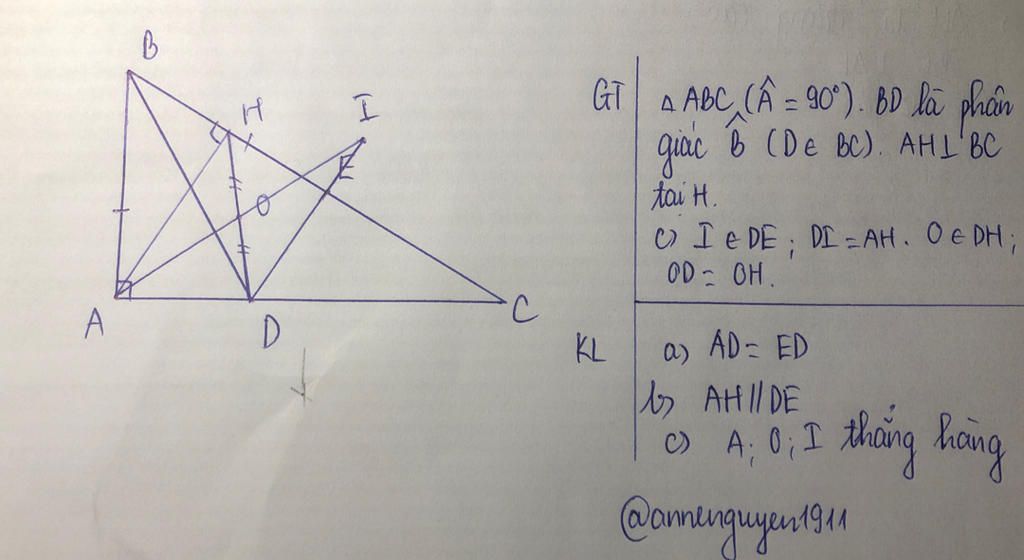 B
H
I
E
O
A
D
C
GT
△ ABC (Â = 90°). BD là phân
giác B̂ (D ∈ BC). AH ⊥ BC
tại H.
c) I ∈ DE ; DI = AH. O ∈ DH ;
OD = OH.
KL
a) AD = ED
b) AH // DE
c) A ; O ; I thẳng hàng
@annenguyen1911